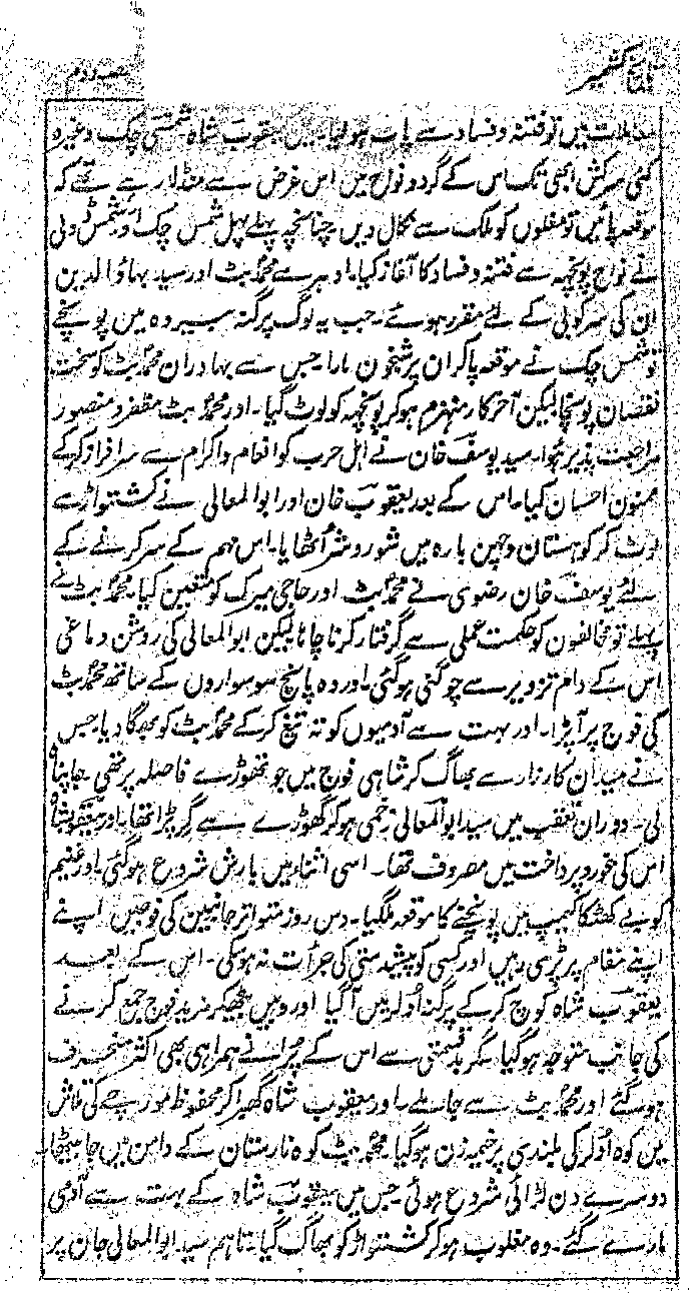 تاریخ کشمیر
حصہ دوم
معاملات میں تو فتنہ و فساد سے پاٹ ہو لیا۔ یعقوب شاہ۔ شمسی چک وغیرہ
کئی سرکش ابھی تک اس کے گرد و نواح میں اس غرض سے منڈلا رہے تھے کہ
موقعہ پائیں تو مغلوں کو ملک سے نکال دیں۔ چنانچہ پہلے پہل شمس چک اور شمس ڈولی
نے نواح پونچھ سے فتنہ و فساد کا آغاز کیا۔ ادہر سے محمد بٹ اور سید بہاؤالدین
ان کی سرکوبی کے لئے مقرر ہوئے۔ جب یہ لوگ پرگنہ بیروہ میں پہونچے
تو شمس چک نے موقعہ پاکر ان پر شبخون مارا جس سے بہادران محمد بٹ کو سخت
نقصان پہونچا لیکن آخر کار منہزم ہو کر پونچھ کو لوٹ گیا۔ اور محمد بٹ مظفر و منصور
مراجعت پذیر ہوا۔ سید یوسف خان نے اہل حرب کو انعام و اکرام سے سرافراز کرکے
ممنون احسان کیا۔ اس کے بعد یعقوب خان اور ابوالمعالی نے کشتواڑ سے
لوٹ کر کوہستان وچھن پارہ میں شور و شر اُٹھایا۔ اس مہم کے سر کرنے کے
لئے یوسف خان رضوی نے محمد بٹ اور حاجی میرک کو متعین کیا۔ محمد بٹ نے
پہلے تو مخالفون کو حکمت عملی سے گرفتار کرنا چاہا لیکن ابوالمعالی کی روشن دماغی
اس کے دام تزویر سے چوکنی ہوگئی۔ اور وہ پانچ سو سواروں کے ساتھ محمد بٹ
کی فوج پر آپڑا۔ اور بہت سے آدمیوں کو تہ تیغ کرکے محمد بٹ کو بھگا دیا۔ جس
نے میدان کارزار سے بھاگ کر شاہی فوج میں جو تھوڑے فاصلہ پر تھی جا پناہ
لی۔ دوران تعقب میں سید ابوالمعالی زخمی ہو کر گھوڑے سے گر پڑا تھا۔ اور یعقوب شاہ
اس کی خورد پرداخت میں مصروف تھا۔ اسی اثناء میں بارش شروع ہوگئی۔ اور غنیم
کو بے کھٹکا کیمپ میں پہونچنے کا موقعہ ملگیا۔ دس روز متواتر جانبین کی فوجیں اپنے
اپنے مقام پر پڑی رہیں اور کسی کو پیشدستی کی جرأت نہ ہو سکی۔ اس کے بعد
یعقوب شاہ کوچ کرکے پرگنہ اُولر میں آگیا اور وہیں بیٹھکر مزید فوج جمع کرنے
کی جانب متوجہ ہوگیا۔ مگر بدقسمتی سے اس کے پرانے ہمراہی بھی اکثر منحرف
ہوگئے اور محمد بٹ سے جا ملے۔ اور یعقوب شاہ گھبرا کر محفوظ مورچے کی تلاش
میں کوہ اُولر کی بلندی پر خیمہ زن ہوگیا۔ محمد بٹ کوہ نارستان کے دامن میں جا بیٹھا۔
دوسرے دن لڑائی شروع ہوئی جس میں یعقوب شاہ کے بہت سے آدمی
مارے گئے۔ وہ مغلوب ہو کر کشتواڑ کو بھاگ گیا۔ تاہم سید ابوالمعالی جان پر